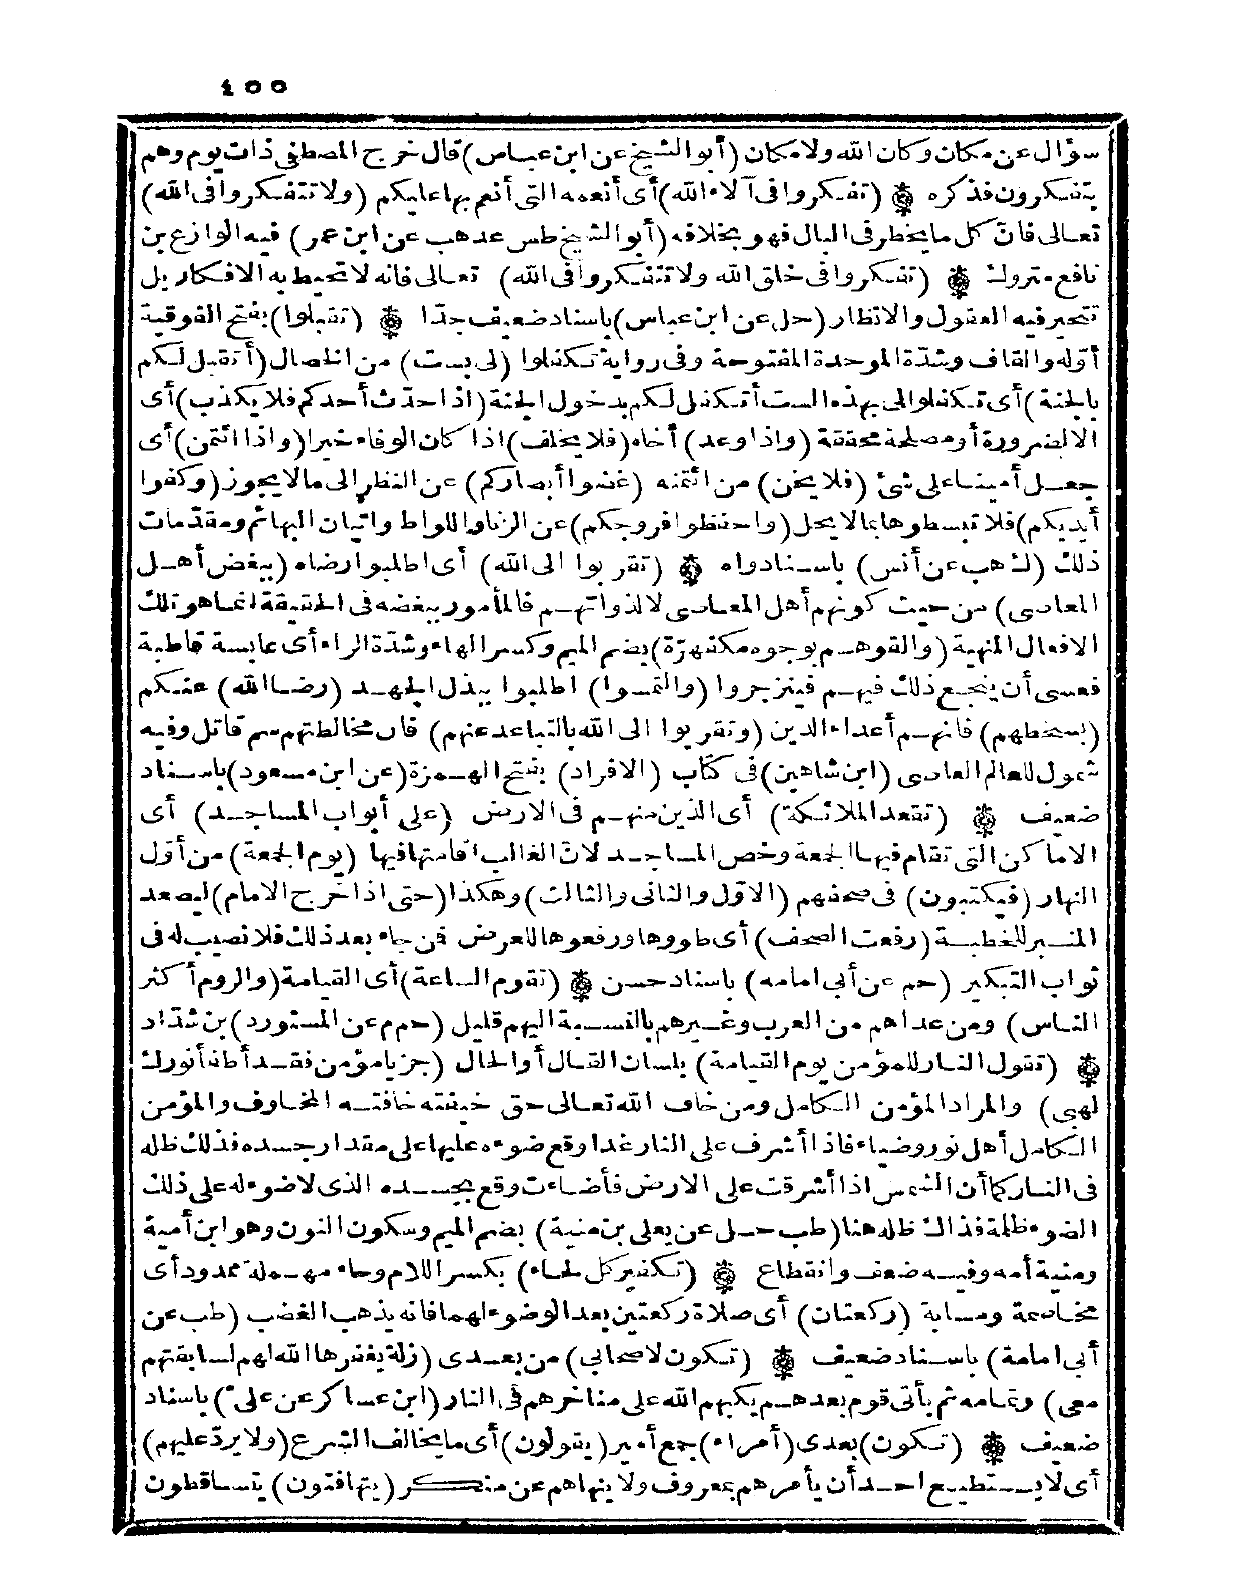 ٤٥٥
سؤال عن مكان وكان الله ولا مكان (أبو الشيخ عن ابن عباس) قال خرج المصطفى ذات يوم وهم
يتفكرون فذكره ۞ (تفكروا فى آلاء الله) أى أنعمه التى أنعم بها عليكم (ولا تتفكروا فى الله)
تعالى فان كل ما يخطر فى البال فهو بخلافه (أبو الشيخ طس عد هب عن ابن عمر) فيه الوازع بن
نافع متروك ۞ (تفكروا فى خلق الله ولا تتفكروا فى الله) تعالى فانه لا تحيط به الافكار بل
تتحير فيه العقول والانظار (حل عن ابن عباس) باسناد ضعيف جدّا ۞ (تقبلوا) بفتح الفوقية
أوّله والقاف وشدّة الموحدة المفتوحة وفى رواية تكفلوا (لى بست) من الخصال (أتقبل لكم
بالجنة) أى تكفلوا لى بهذه الست أتكفل لكم بدخول الجنة (اذا حدث أحدكم فلا يكذب) أى
الا لضرورة أو مصلحة محققة (واذا وعد) أخاه (فلا يخلف) اذا كان الوفاء خيرا (واذا ائتمن) أى
جعل أمينا على شئ (فلا يخن) من ائتمنه (غضوا أبصاركم) عن النظر الى ما لا يجوز (وكفوا
أيديكم) فلا تبسطوها بما لا يحل (واحفظوا فروجكم) عن الزنا واللواط واتيان البهائم ومقدّمات
ذلك (ك هب عن أنس) باسناد واه ۞ (تقربوا الى الله) أى اطلبوا رضاه (ببغض أهل
المعاصى) من حيث كونهم أهل المعاصى لا لذواتهم فالمأمور ببغضه فى الحقيقة انما هو تلك
الافعال المنهية (والقوهم بوجوه مكفهرّة) بضم الميم وكسر الهاء وشدّة الراء أى عابسة قاطبة
فعسى أن ينجع ذلك فيهم فينزجروا (والتمسوا) اطلبوا ببذل الجهد (رضا الله) عنكم
(بسخطهم) فانهم أعداء الدين (وتقربوا الى الله بالتباعد عنهم) فان مخالطتهم سم قاتل وفيه
شمول للعالم العاصى (ابن شاهين) فى كتاب (الافراد) بفتح الهمزة (عن ابن مسعود) باسناد
ضعيف ۞ (تقعد الملائكة) أى الذين منهم فى الارض (على أبواب المساجد) أى
الاماكن التى تقام فيها الجمعة وخص المساجد لان الغالب اقامتها فيها (يوم الجمعة) من أوّل
النهار (فيكتبون) فى صحفهم (الاوّل والثانى والثالث) وهكذا (حتى اذا خرج الامام) ليصعد
المنبر للخطبة (رفعت الصحف) أى طووها ورفعوها للعرض فمن جاء بعد ذلك فلا نصيب له فى
ثواب التبكير (حم عن أبى امامه) باسناد حسن ۞ (تقوم الساعة) أى القيامة (والروم أكثر
الناس) ومن عداهم من العرب وغيرهم بالنسبة اليهم قليل (حم م عن المستورد) بن شدّاد
۞ (تقول النار للمؤمن يوم القيامة) بلسان القال أو الحال (جز يا مؤمن فقد أطفأ نورك
لهبى) والمراد المؤمن الكامل ومن خاف الله تعالى حق خيفته خافته المخاوف والمؤمن
الكامل أهل نور وضياء فاذا أشرف على النار غدا وقع ضوءه عليها على مقدار جسده فذلك ظله
فى النار كما أن الشمس اذا أشرقت على الارض فأضاءت وقع بجسده الذى لا ضوء له على ذلك
الضوء ظلمة فذاك ظله هنا (طب حل عن يعلى بن منية) بضم الميم وسكون النون وهو ابن أمية
ومنية أمه وفيه ضعف وانقطاع ۞ (تكفير كل لحاء) بكسر اللام وحاء مهملة ممدود أى
مخاصمة ومسابة (ركعتان) أى صلاة ركعتين بعد الوضوء لهما فانه يذهب الغضب (طب عن
أبى امامة) باسناد ضعيف ۞ (تكون لاصحابى) من بعدى (زلة يغفرها الله لهم لسابقتهم
معى) وتمامه ثم يأتى قوم بعدهم يكبهم الله على مناخرهم فى النار (ابن عساكر عن علىّ) باسناد
ضعيف ۞ (تكون) بعدى (أمراء) جمع أمير (يقولون) أى ما يخالف الشرع (ولا يردّ عليهم)
أى لا يستطيع احد أن يأمرهم بمعروف ولا ينهاهم عن منكر (يتهافتون) يتساقطون